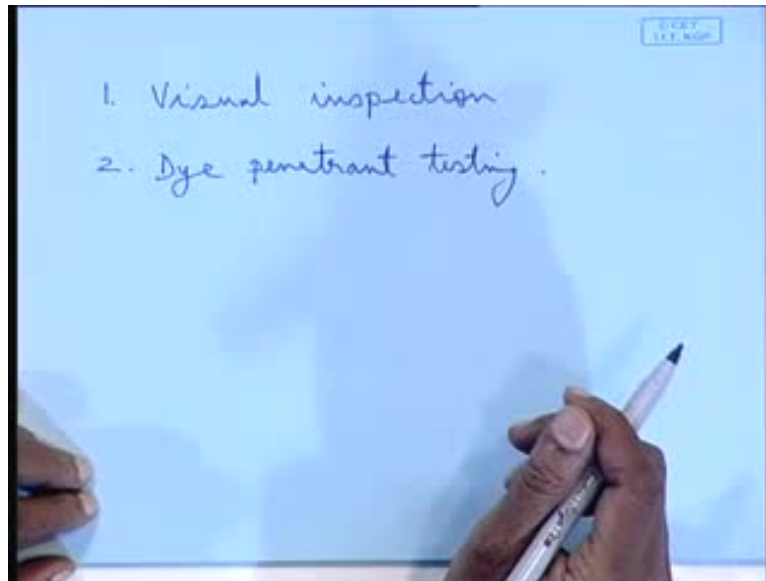 © CET
I.I.T. KGP
1. Visual inspection
2. Dye penetrant testing.